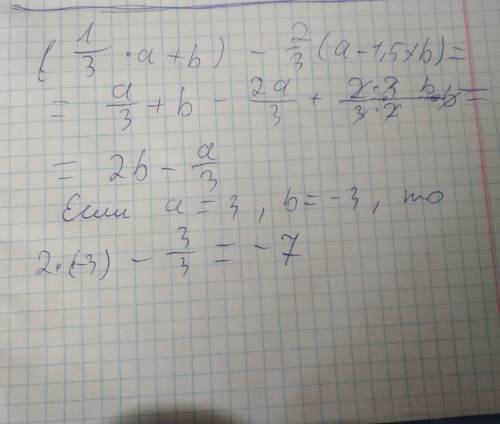 ( 1/3 · a + b ) - 2/3 (a - 1,5 × b) =
= a/3 + b - 2a/3 + 2·3/3·2 b =
= 2b - a/3
Если a = 3, b = -3, то
2·(-3) - 3/3 = -7